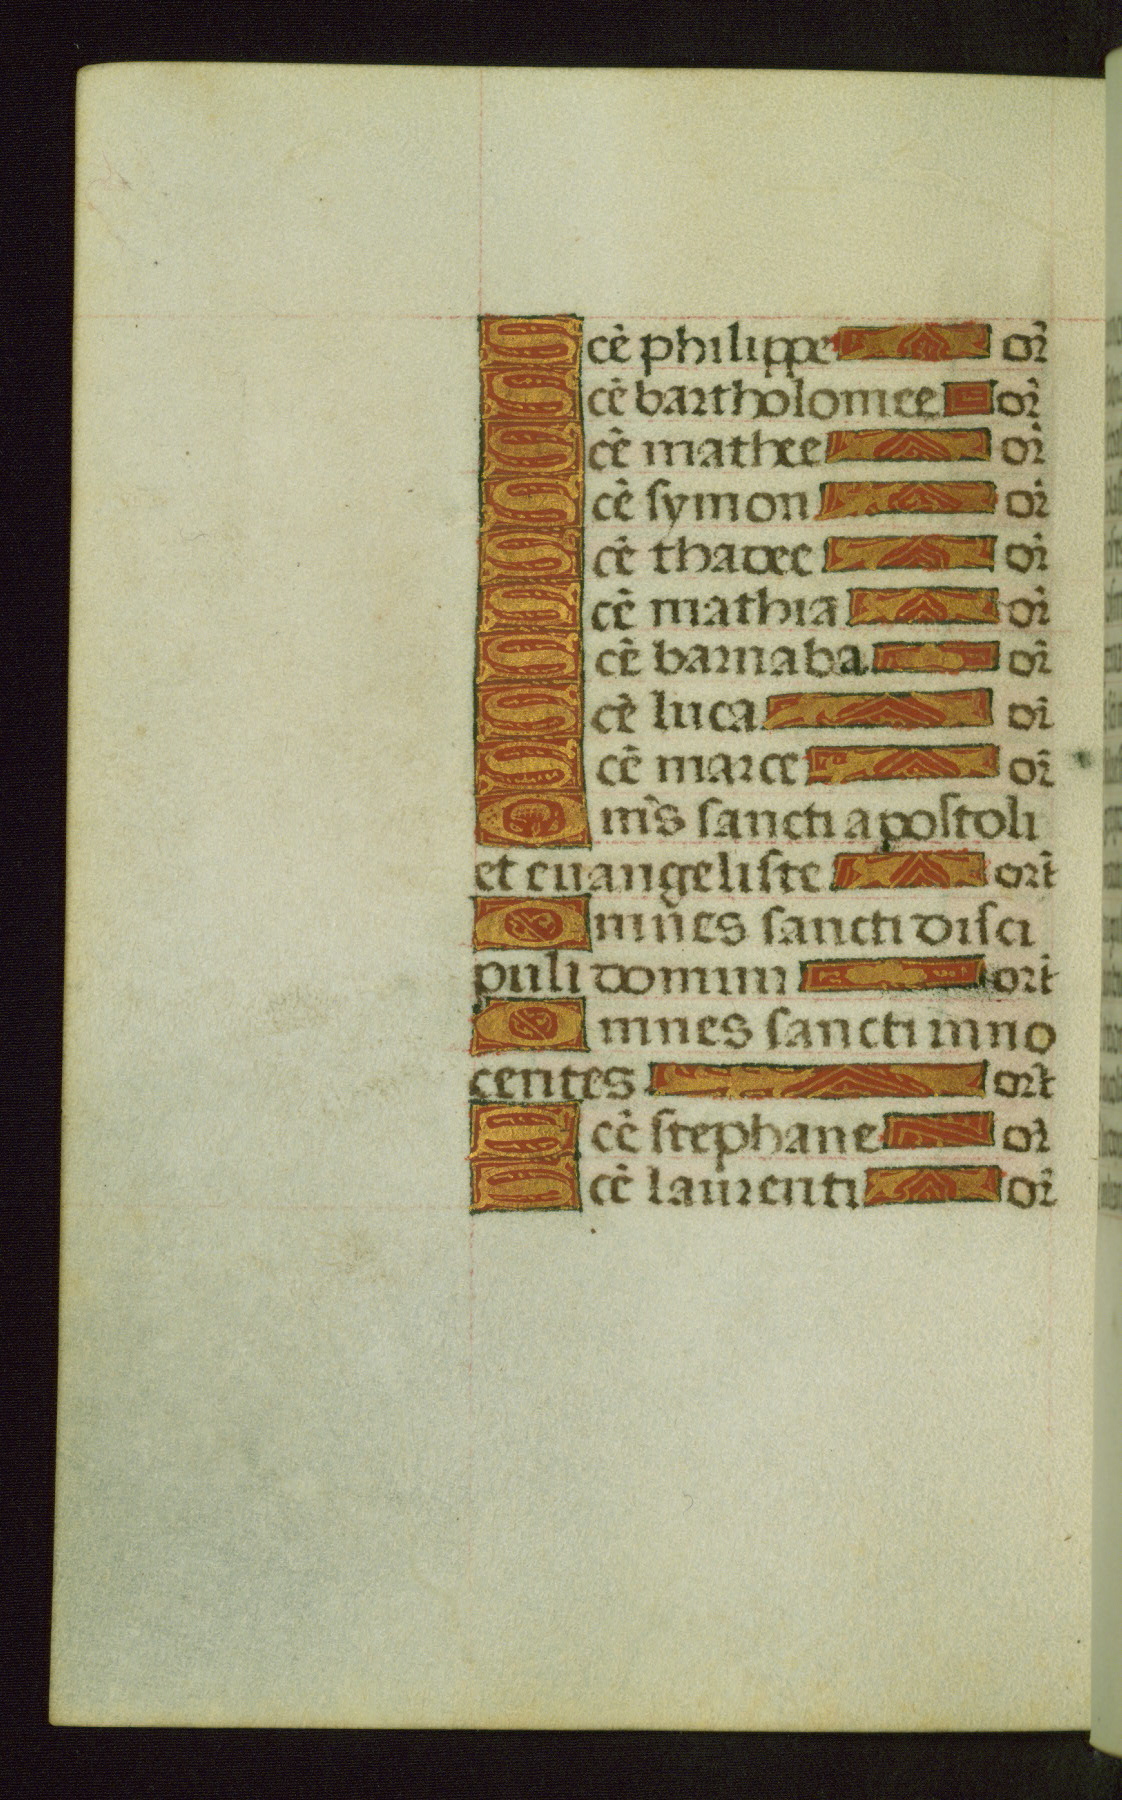 Scē philippe or̄
Scē bartholomee or̄
Scē mathee or̄
Scē symon or̄
Scē thadee or̄
Scē mathia or̄
Scē barnaba or̄
Scē luca or̄
Scē marce or̄
Om̄s sancti apostoli
et euangeliste ort̄
Omnes sancti disci
puli domini ort̄
Omnes sancti inno
centes ort̄
Scē stephane or̄
Scē laurenti or̄